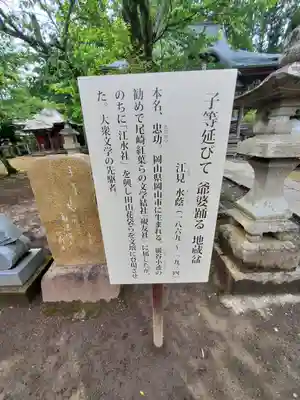 子等延びて 爺婆踊る 地蔵盆
江見 水蔭(一八六九〜一九三四)
本名、忠功 岡山県岡山市に生まれる。巌谷小波の
勧めで尾崎紅葉らの文学結社「硯友社」に属したが、
のちに「江水社」を興し田山花袋らを文壇に登場させ
た。大衆文学の先駆者